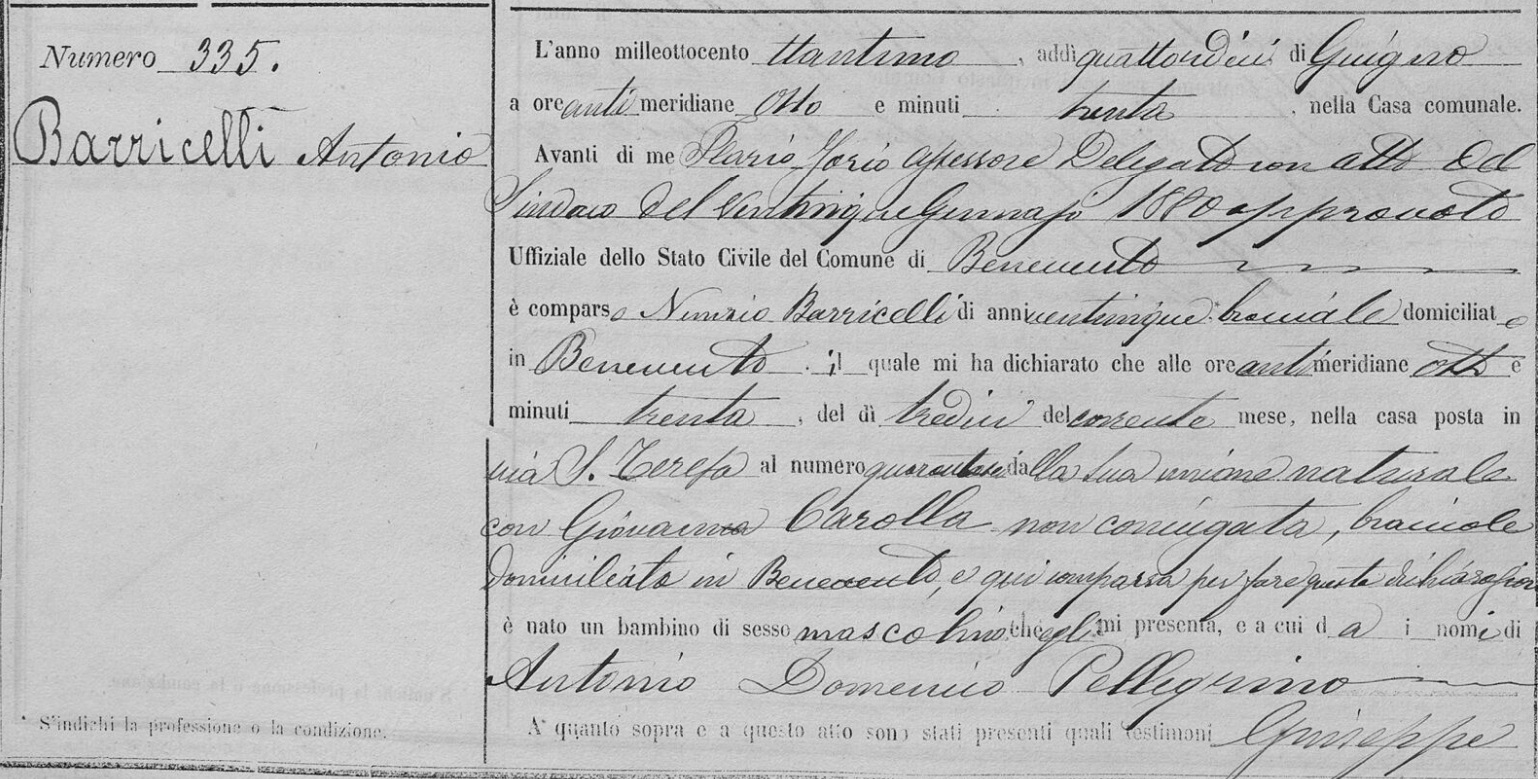 Numero 335.
Barricelli Antonio
L'anno milleottocento ttantuno, addì quattordici di Giugno
a ore anti meridiane Otto e minuti trenta, nella Casa comunale.
Avanti di me Ilario Jorio Assessore Delegato con atto del
Sindaco del Gennajo 1880 approvato
Uffiziale dello Stato Civile del Comune di Benevento
è comparso Nunzio Barricelli di anni venticinque bracciale domiciliato
in Benevento il quale mi ha dichiarato che alle ore anti meridiane otto e
minuti trenta, del dì tredici del corrente mese, nella casa posta in
via S. Teresa al numero dalla sua unione naturale
con Giovanna Carolla non coniugata, bracciale
domiciliata in Benevento, e qui comparsa per fare questa dichiarazion
è nato un bambino di sesso mascolino che egli mi presenta, e a cui da i nomi di
Antonio Domenico Pellegrino
A quanto sopra e a questo atto sono stati presenti quali testimoni Giuseppe
* S'indichi la professione o la condizione.